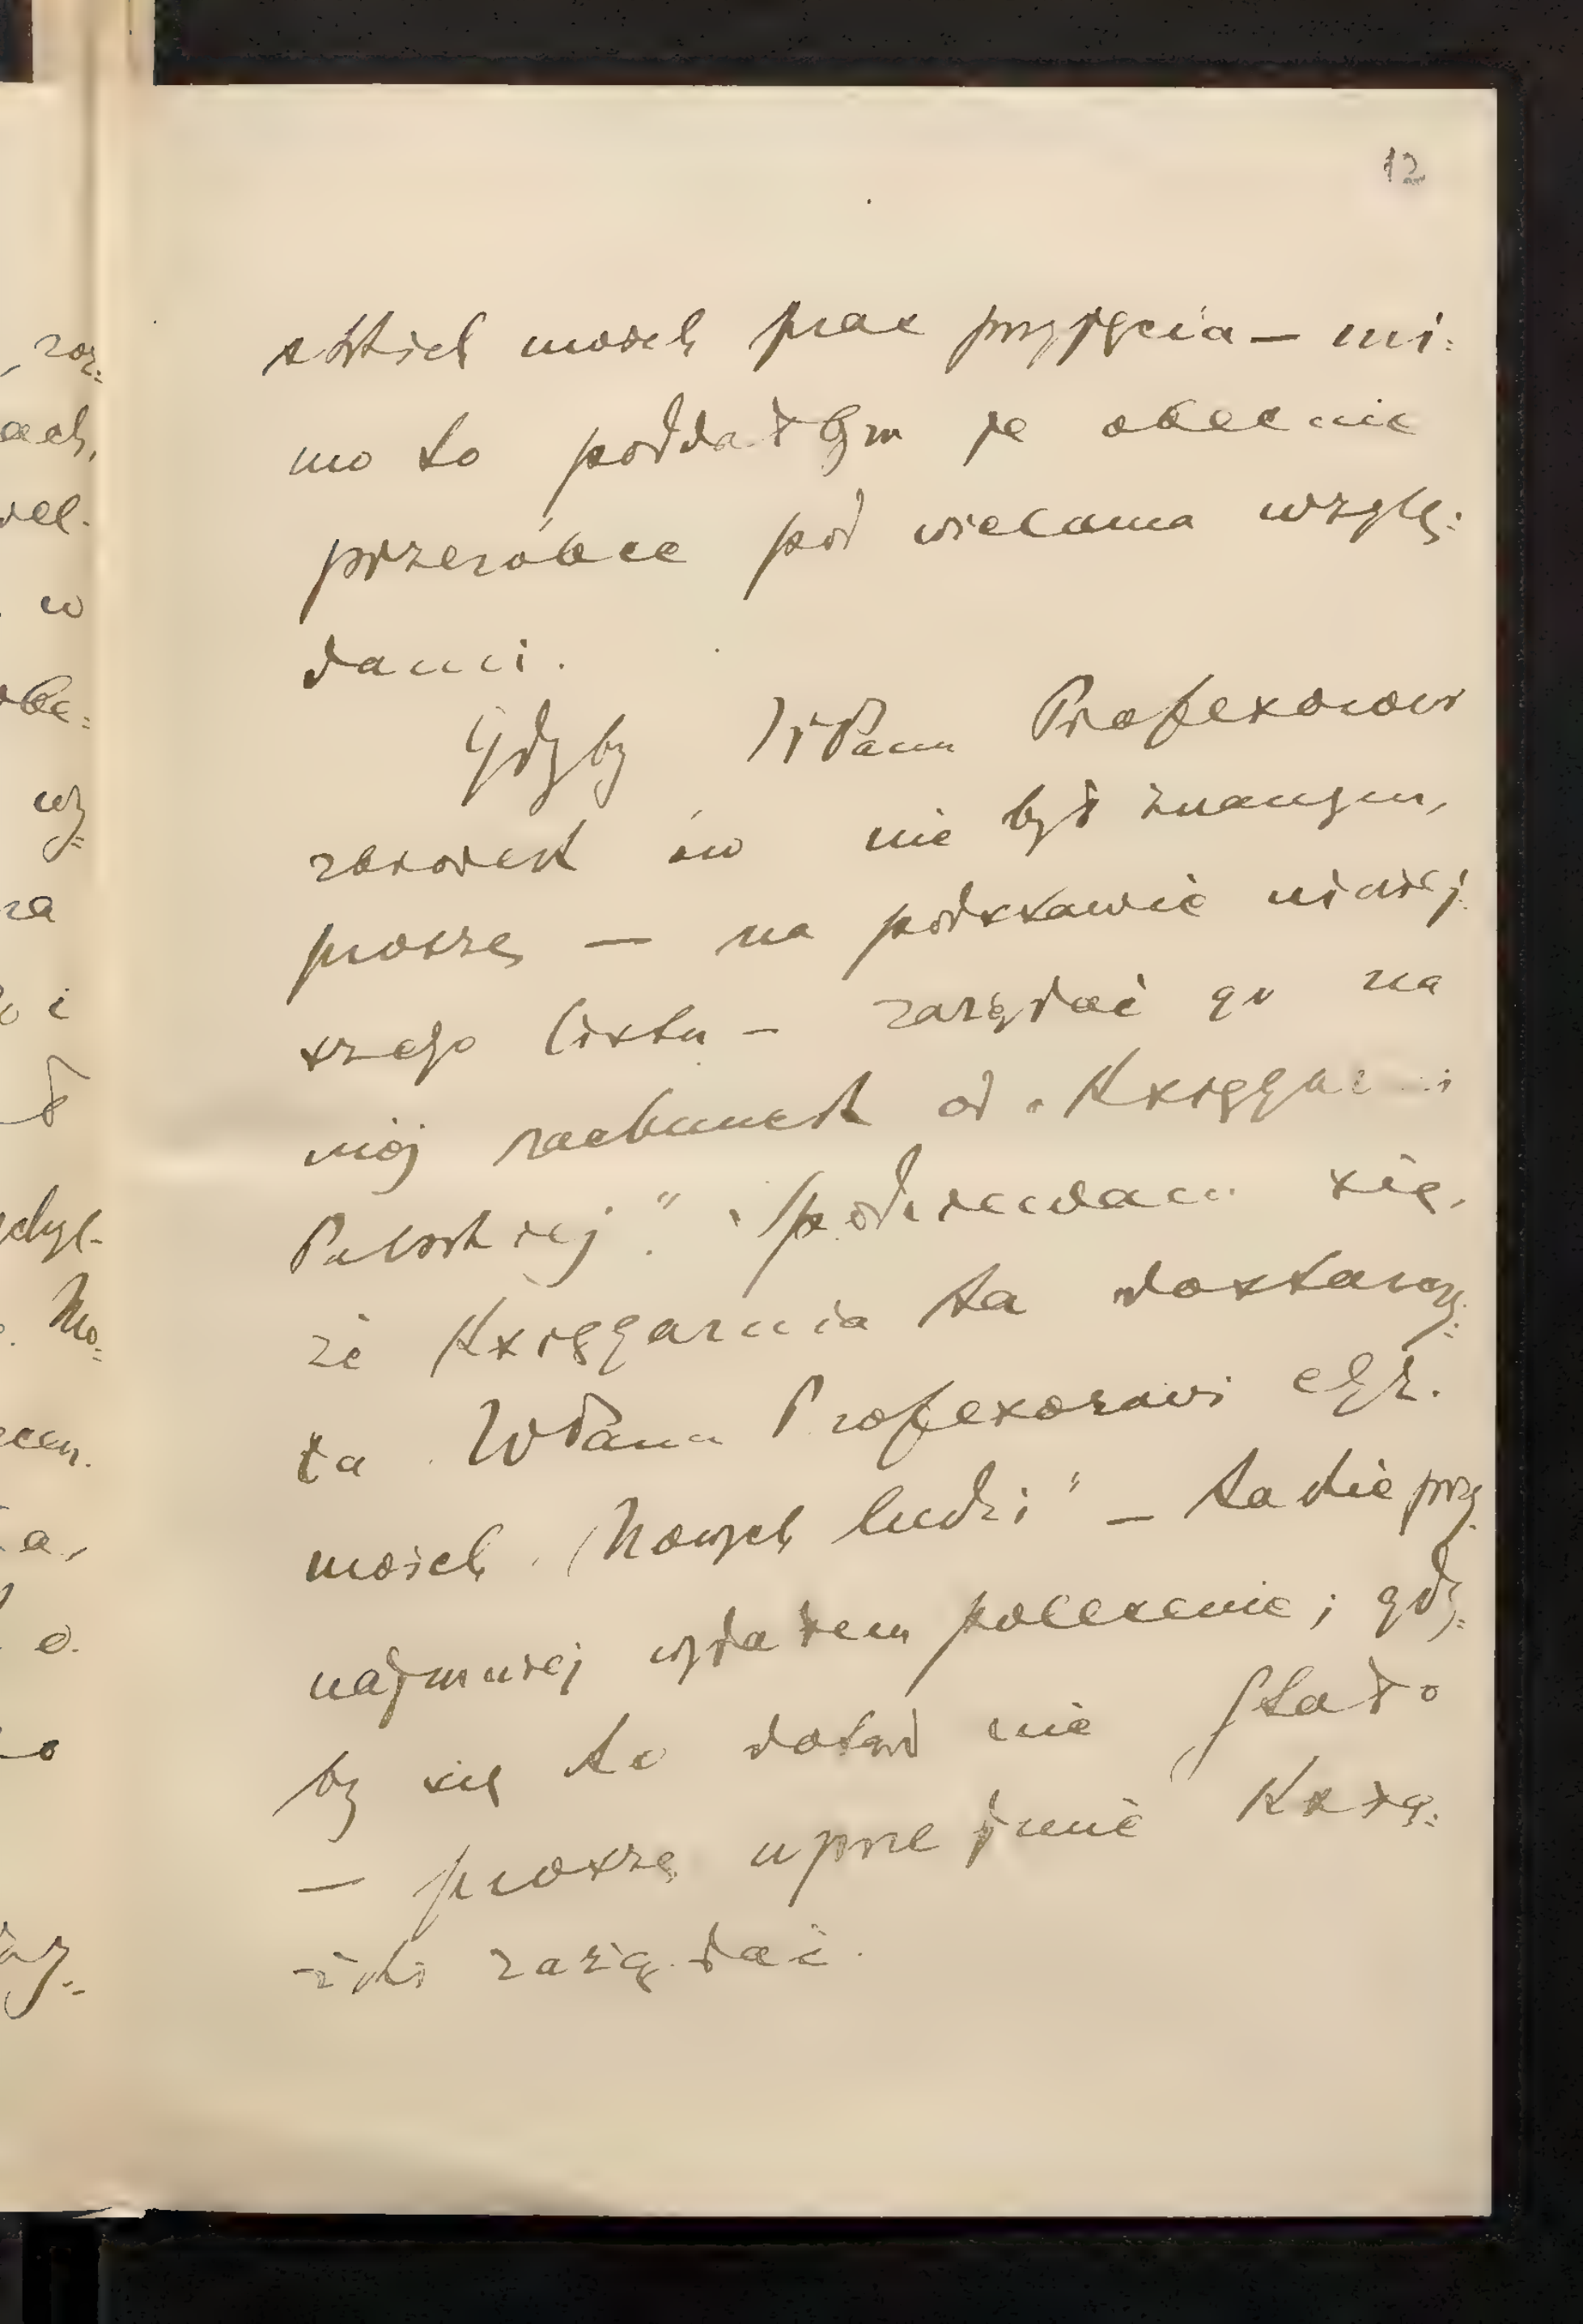 12
stkich moich prac przyjęcia — mi=
mo to poddałbym je obecnie
przeróbce pod wieloma wzglę=
dami.
Gdyby WPanu Profesorowi
zeszyt ów nie był znanym,
proszę — na podstawie niniej=
szego listu — zażądać go na
mój rachunek od „Księgarni
Polskiej". Spodziewam się,
że Księgarnia ta dostarczy=
ła WPanu Profesorowi egz.
moich „Nowych ludzi" — takie przy=
najmniej wydałem polecenie; gdy=
by się to dotąd nie stało
— proszę uprzejmie Ksią=
żki zażądać.